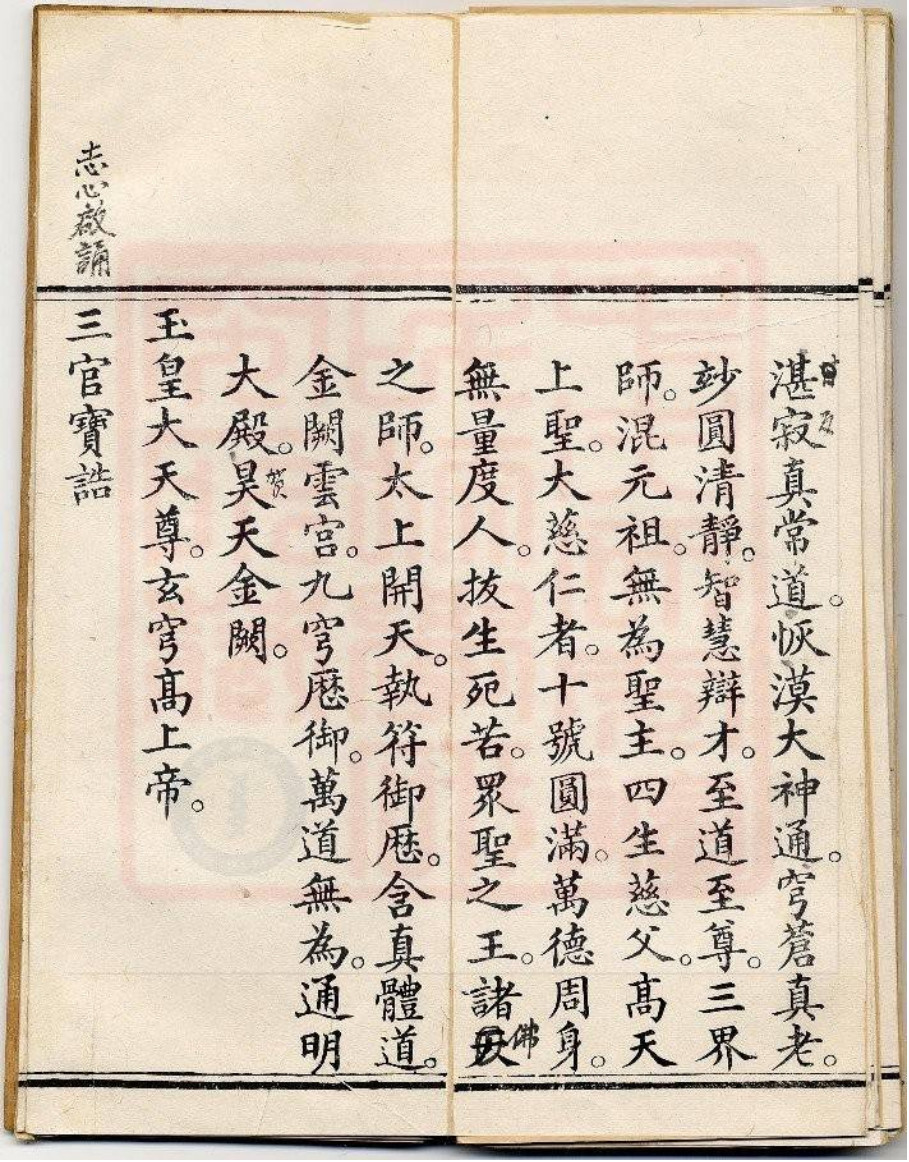 湛寂真常道。恢漠大神通。穹蒼真老。
玅圓清靜。智慧辯才。至道至尊。三界
師。混元祖。無為聖主。四生慈父。高天
上聖。大慈仁者。十號圓滿。萬德周身。
無量度人。拔生死苦。眾聖之王。諸佛
之師。太上開天。執符御厯。含真體道。
金闕雲宮。九穹厯御。萬道無為。通明
大殿。昊天金闕。
賀
玉皇大天尊。玄穹高上帝。
志心啟誦
三官寶誥